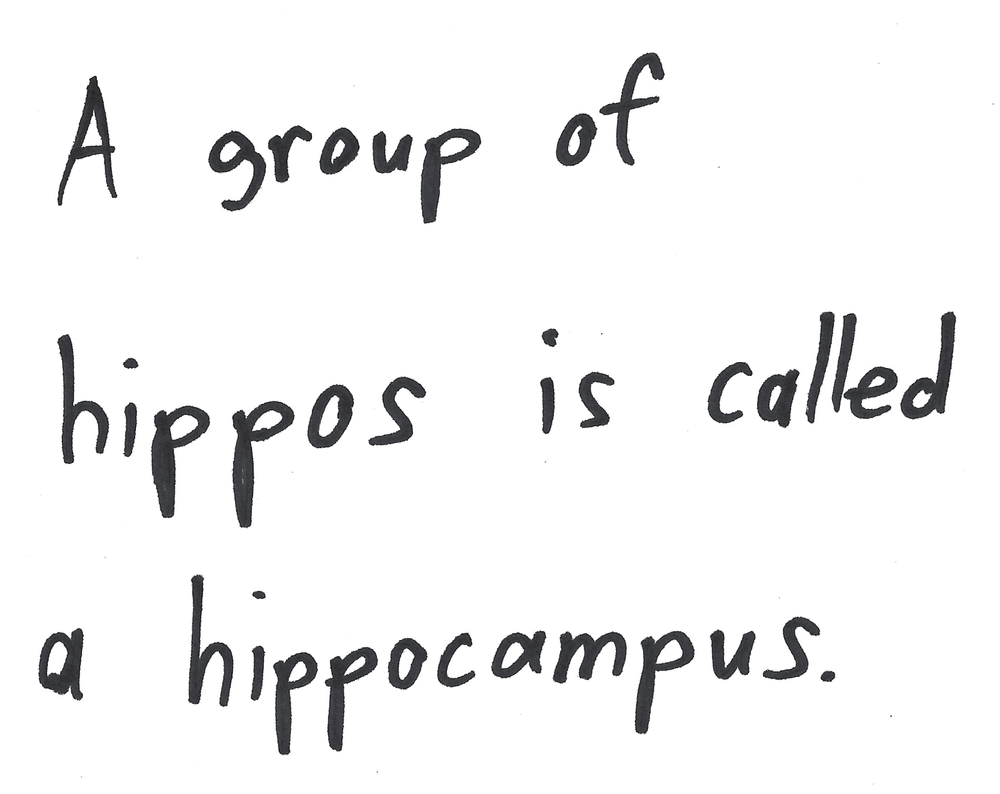 A group of
hippos is called
a hippocampus.